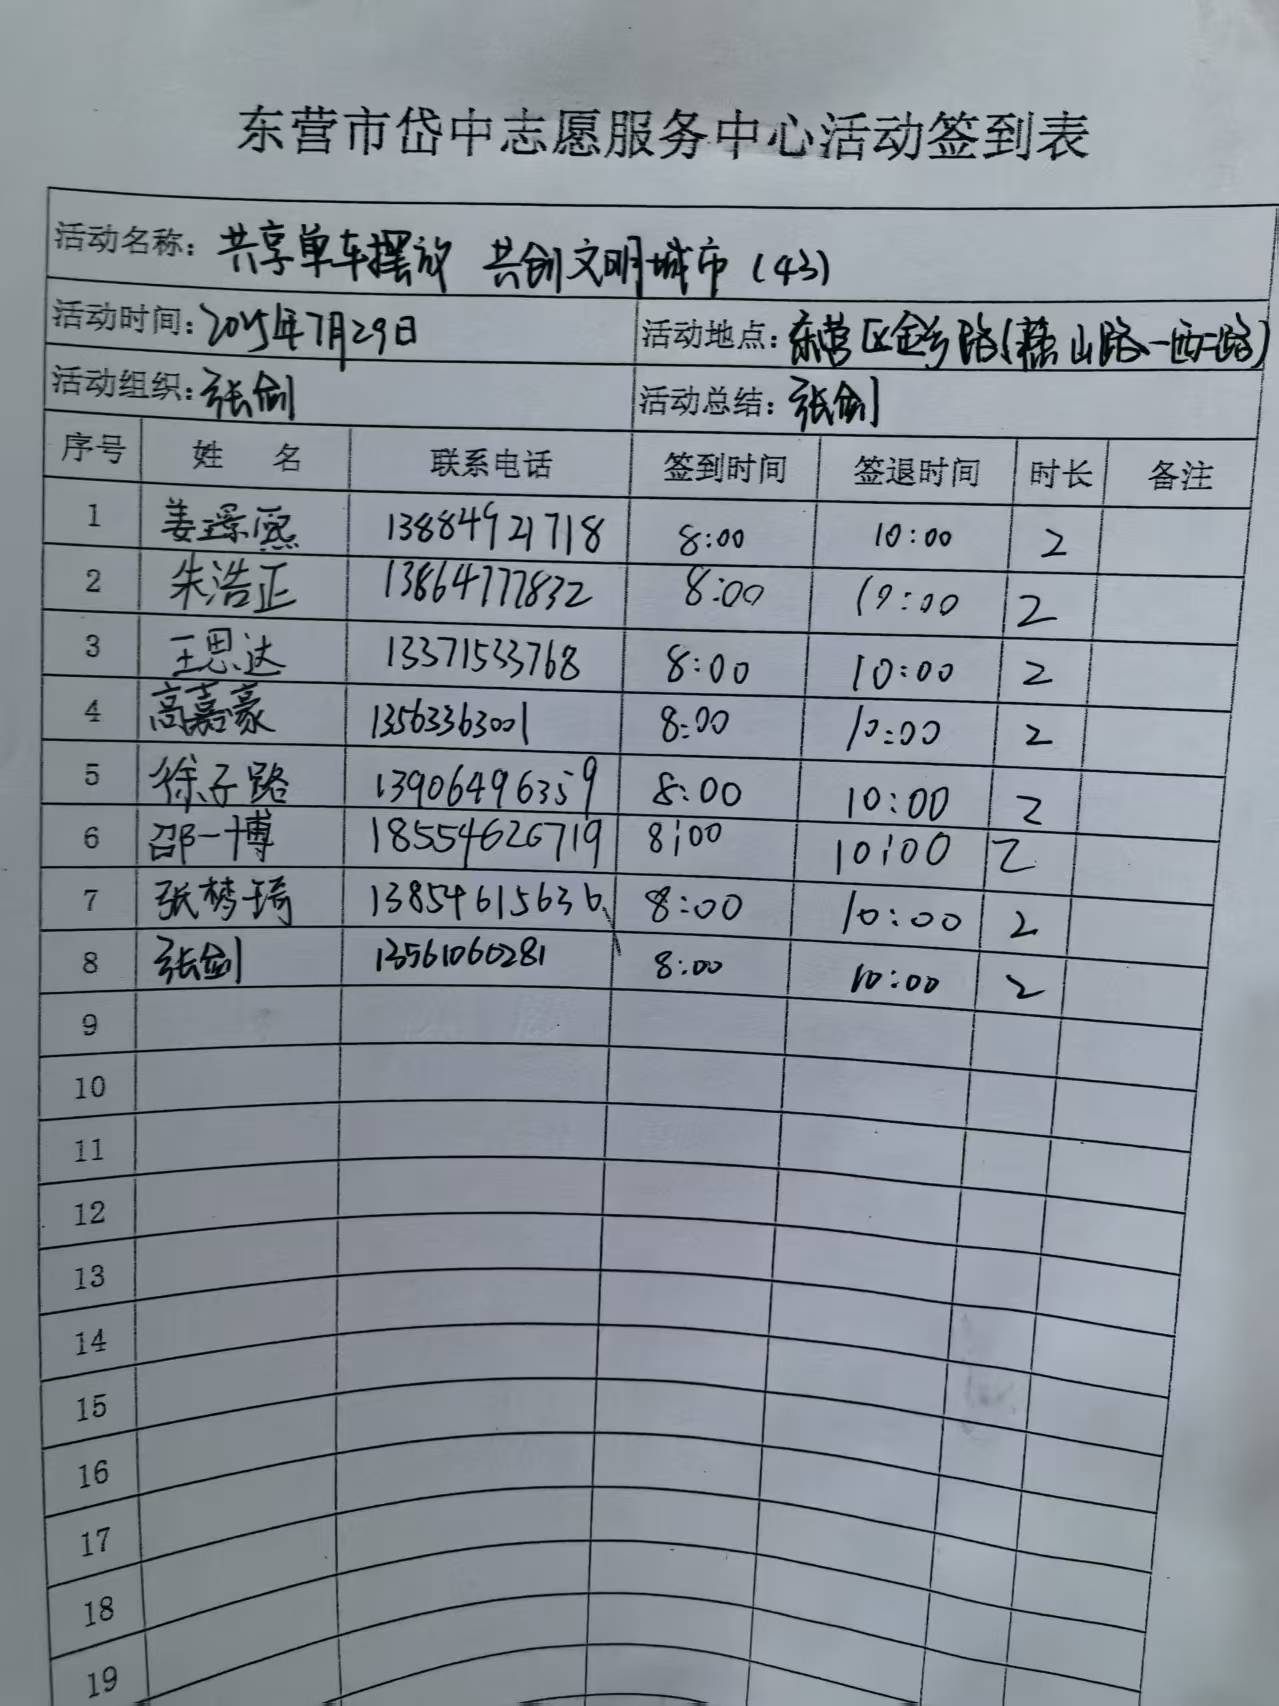 东营市岱中志愿服务中心活动签到表
活动名称：共享单车摆放 共创文明城市（43）
活动时间：2025年7月29日 活动地点：东营区金乡路(燕山路-西二路)
活动组织：张剑 活动总结：张剑
序号 姓 名 联系电话 签到时间 签退时间 时长 备注
1 姜璟熙 13884921718 8:00 10:00 2
2 朱浩正 13864777832 8:00 10:00 2
3 王思达 13371533768 8:00 10:00 2
4 高嘉豪 13563363001 8:00 10:00 2
5 徐子路 13906496359 8:00 10:00 2
6 邵一博 18554626719 8:00 10:00 2
7 张梦琦 13854615636 8:00 10:00 2
8 张剑 13561060281 8:00 10:00 2
9
10
11
12
13
14
15
16
17
18
19